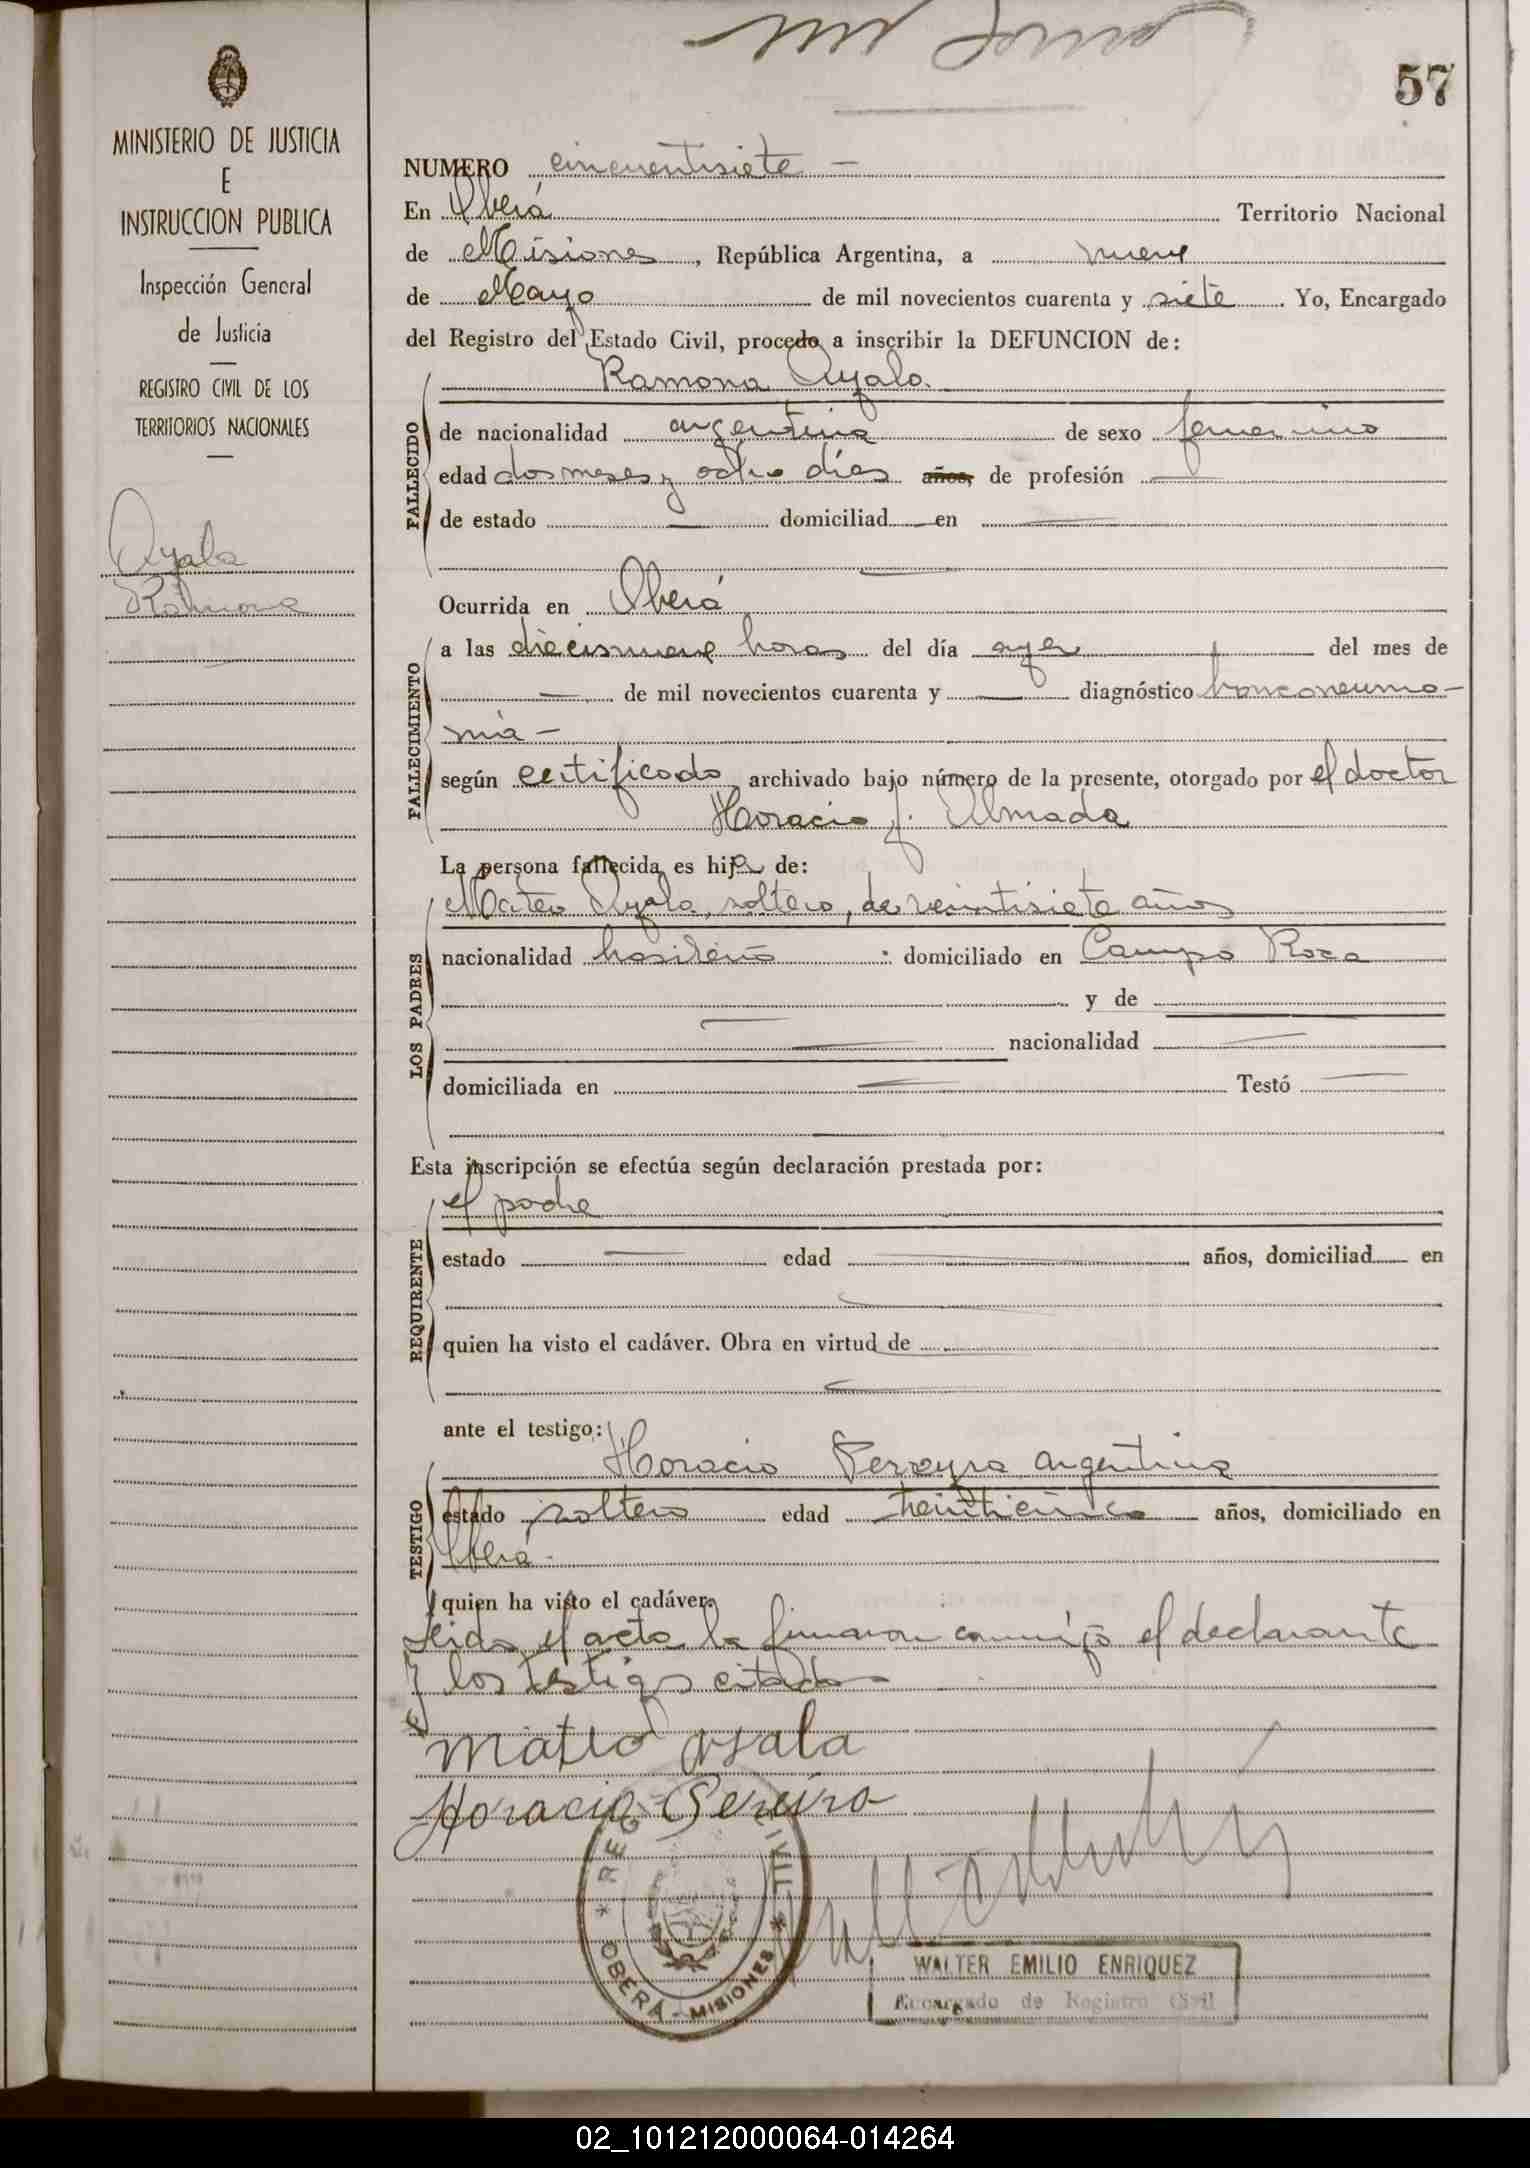 57
MINISTERIO DE JUSTICIA
E
INSTRUCCION PUBLICA
Inspección General
de Justicia
REGISTRO CIVIL DE LOS
TERRITORIOS NACIONALES
Ayala
Ramona
NUMERO cincuentisiete —
En Oberá Territorio Nacional
de Misiones, República Argentina, a nueve
de Mayo de mil novecientos cuarenta y siete. Yo, Encargado
del Registro del Estado Civil, procedo a inscribir la DEFUNCION de:
FALLECIDO
Ramona Ayala
de nacionalidad argentina de sexo femenino
edad dos meses y ocho días años, de profesión —
de estado — domiciliad — en —
—
Ocurrida en Oberá
FALLECIMIENTO
a las diecinueve horas del día ayer del mes de
— de mil novecientos cuarenta y — diagnóstico bronconeumo-
nia —
según certificado archivado bajo número de la presente, otorgado por el doctor
Horacio J. Almada
La persona fallecida es hija de:
LOS PADRES
Mateo Ayala, soltero, de veintisiete años
nacionalidad brasileño domiciliado en Campo Roca
y de —
— nacionalidad —
domiciliada en — Testó —
Esta inscripción se efectúa según declaración prestada por:
REQUIRENTE
el padre
estado — edad — años, domiciliad en
—
quien ha visto el cadáver. Obra en virtud de
—
ante el testigo:
TESTIGO
Horacio Pereyra argentino
estado soltero edad treinticinco años, domiciliado en
Oberá.
quien ha visto el cadáver.
Leida el acta la firmaron conmigo el declarante
y los testigos citados
Mateo Ayala
Horacio Pereira
REG CIVIL
* OBERÁ - MISIONES *
WALTER EMILIO ENRIQUEZ
Encargado de Registro Civil
02_101212000064-014264